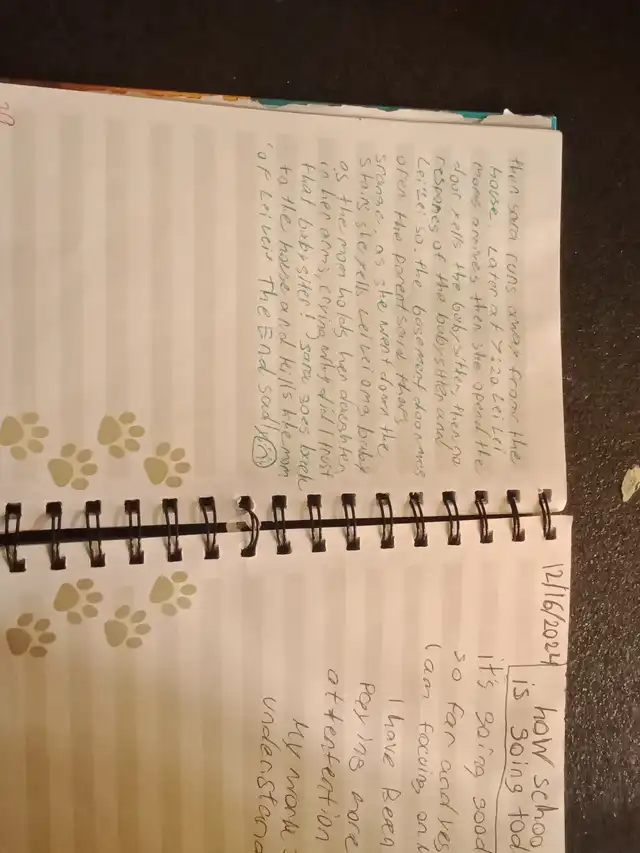 then sara runs away from the
house. Later at 7:20 Lei Lei
moms arrives then she opend the
door yells the babysitter, then no
respones of the babysitter and
Lei Lei so. the basement door was
open the parent said thats
strange, as she went down the
stairs she yells Lei Lei omg baby
as the mom holds her daughter
in her arms, crying why did I trust
that babysitter! sara goes back
to the house and kills the mom
of Lei Lei. The End sadly
12/16/2024
is how schoo
going tod
it's going good
so far and yes
I am focuing on
I have Been
Paying more
attentention
My work
understand